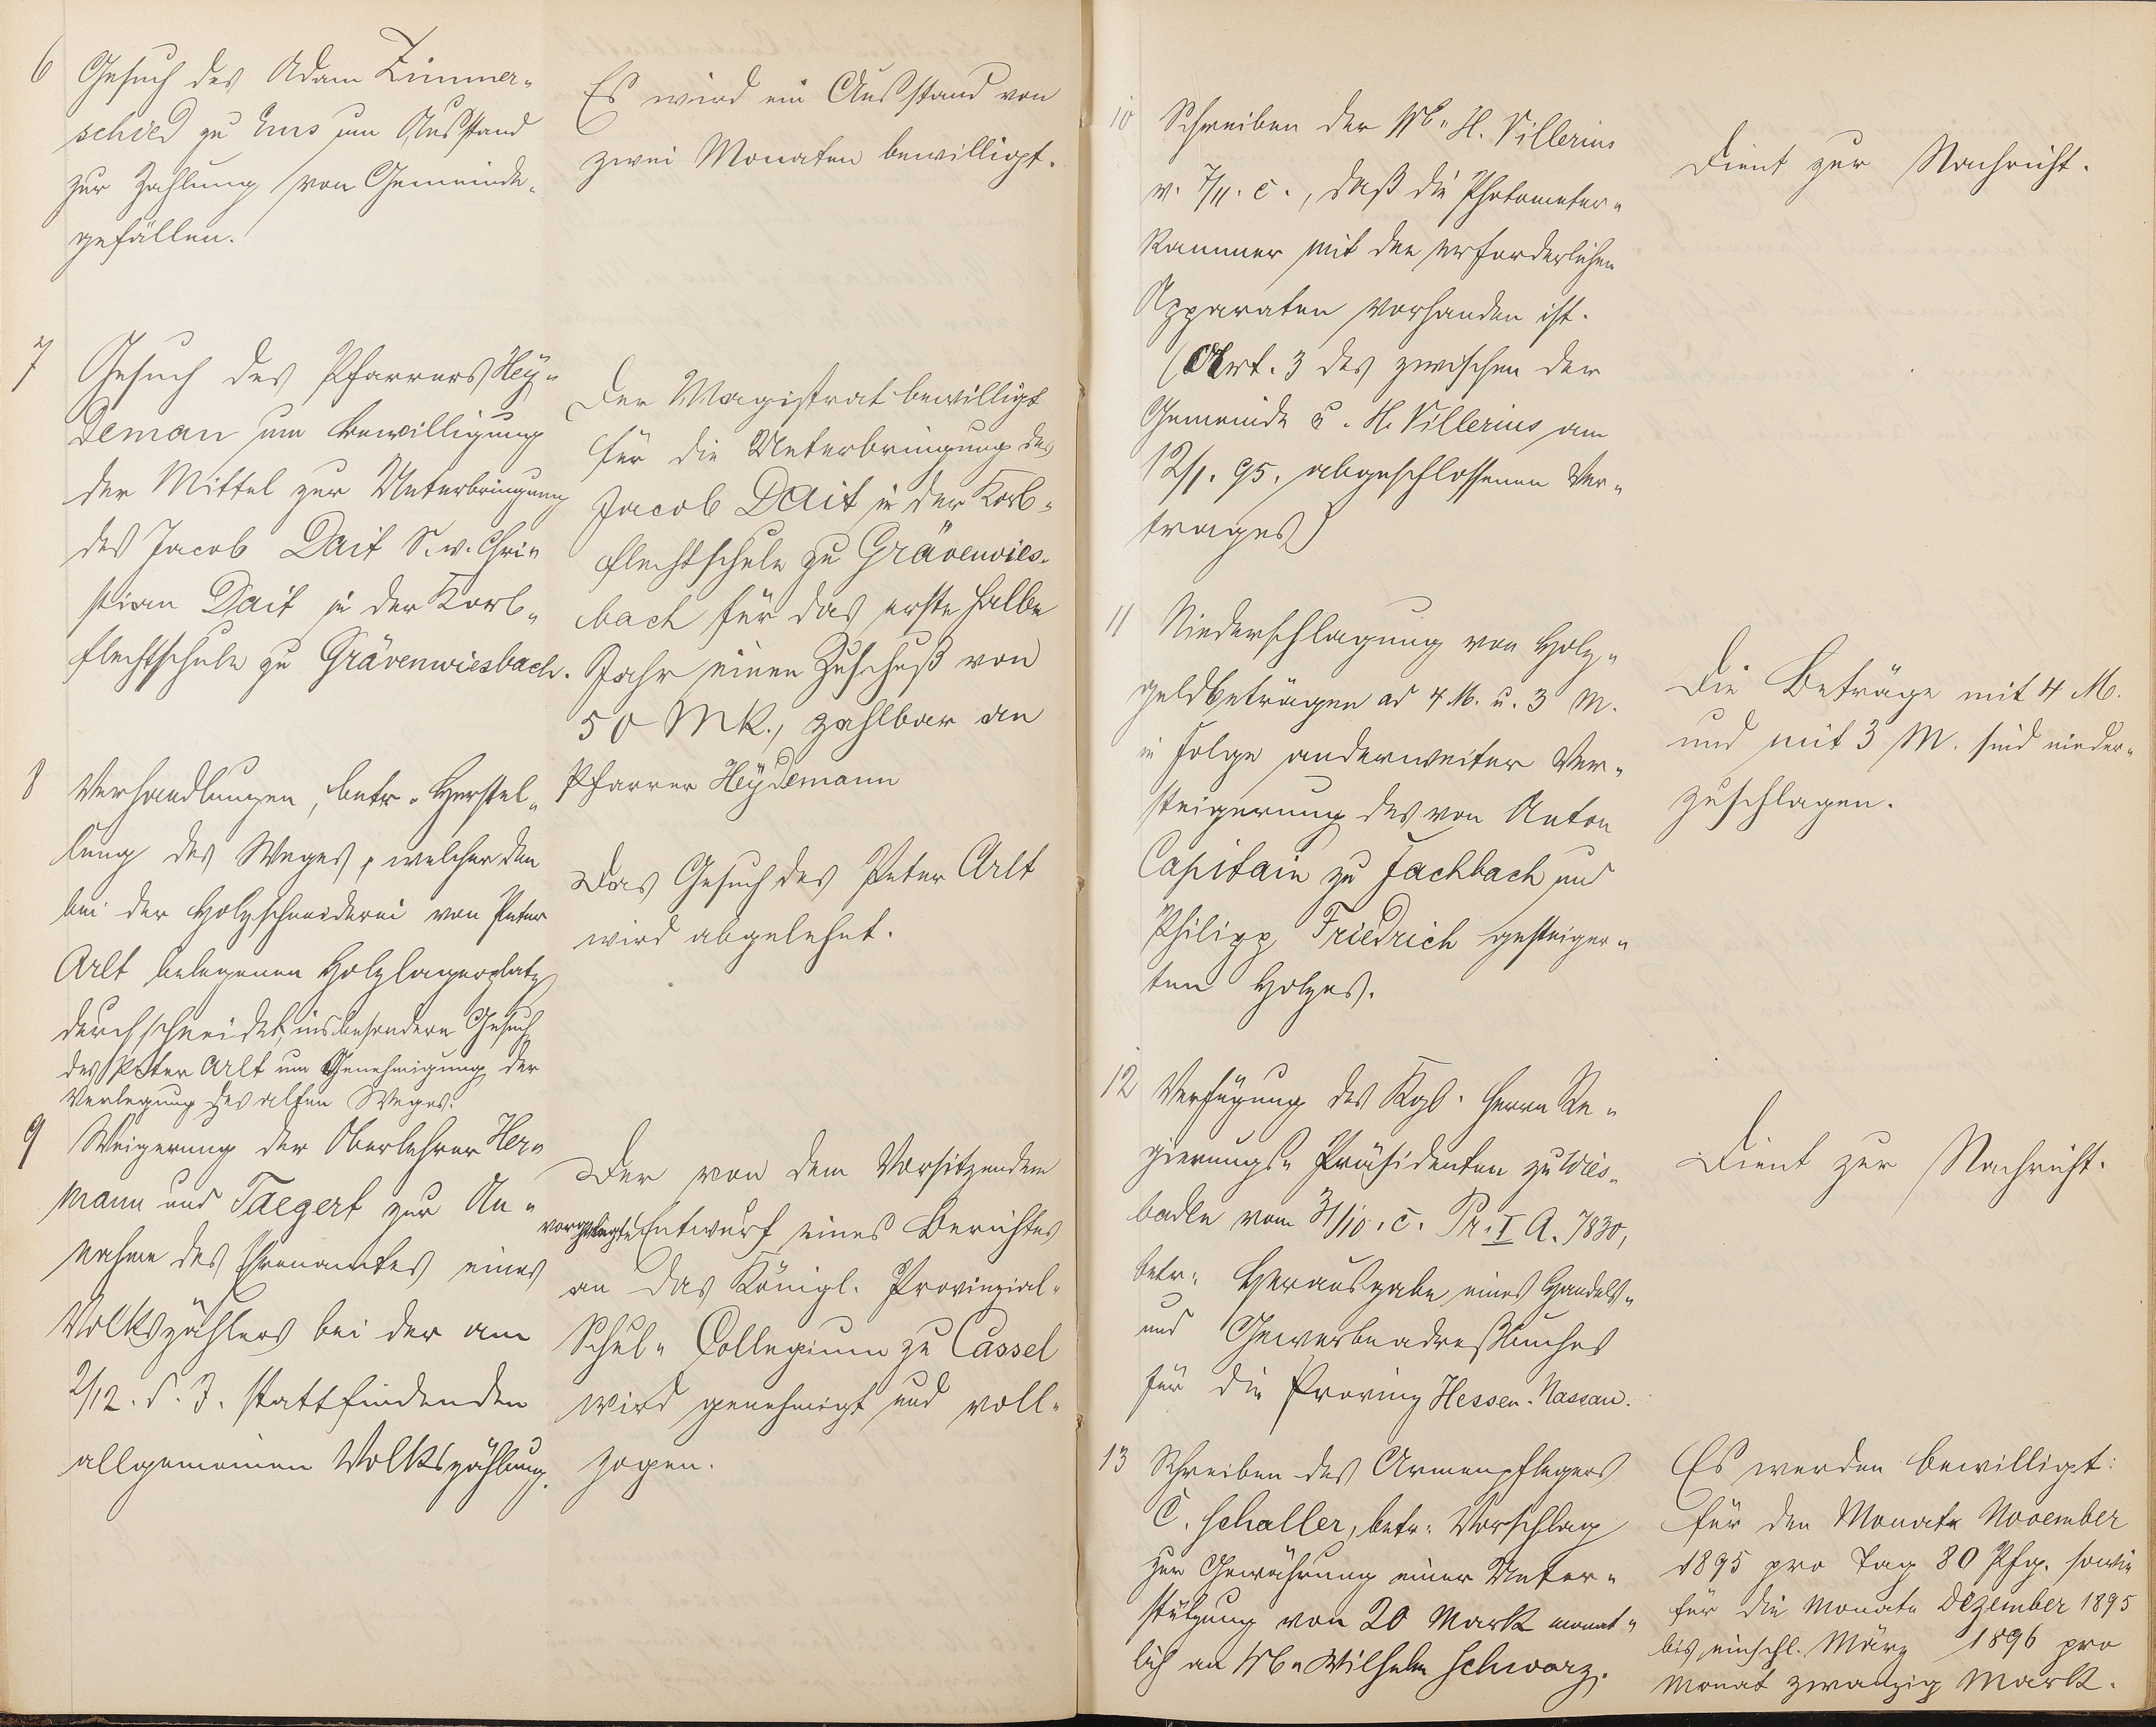 6 Gesuch des Adam Zimmer-
schied zu Ems um Ausstand
zur Zahlung von Gemeinde-
gefällen.
Es wird ein Ausstand von
zwei Monaten bewilligt.
7 Gesuch des Pfarrers Hey-
deman um Bewilligung
der Mittel zur Unterbringung
des Jacob Dait S. v. Chri-
stian Dait in der Korb-
flechtschule zu Grävenwiesbach.
Der Magistrat bewilligt
für die Unterbringung des
Jacob Dait in der Korb-
flechtschule zu Grävenwies-
bach für das erste halbe
Jahr einen Zuschuß von
50 Mk., zahlbar an
Pfarrer Heydemann
8 Verhandlungen, betr. Herstel-
lung des Weges, welcher den
bei der Holzschneiderei von Peter
Arlt belegenen Holzlagerplatz
durchschneidet, insbesondere Gesuch
des Peter Arlt um Genehmigung der
Verlegung des alten Weges.
Das Gesuch des Peter Arlt
wird abgelehnt.
9 Weigerung der Oberlehrer Her-
mann und Taegert zur An-
nahme des Ehrenamtes eines
Volkszählers bei der am
2/12. d. J. stattfindenden
allgemeinen Volkszählung.
Der von dem Vorsitzenden
vorgelegte Entwurf eines Berichtes
an das Königl. Provinzial-
Schul-Collegium zu Cassel
wird genehmigt und voll-
zogen.
10 Schreiben der Wb. H. Villerius
v. 7/11. c., daß die Photometer-
kammer mit den erforderlichen
Apparaten vorhanden ist.
(Art. 3 des zwischen der
Gemeinde u. H. Villerius am
12/1. 95. abgeschlossenen Ver-
trages)
Dient zur Nachricht.
11 Niederschlagung von Holz-
geldbeträgen ad 4 M. u. 3 M.
in Folge anderweiter Ver-
steigerung des von Anton
Capitain zu Fachbach und
Philipp Friedrich gesteiger-
ten Holzes.
Die Beträge mit 4 M.
und mit 3 M. sind nieder-
zuschlagen.
12 Verfügung des Kgl. Herrn Re-
gierungs-Präsidenten zu Wies-
baden vom 31/10. c. Pr. I A. 7830,
betr. Herausgabe eines Handels-
und Gewerbeadreßbuches
für die Provinz Hessen-Nassau.
Dient zur Nachricht.
13 Schreiben des Armenpflegers
C. Schaller, betr. Vorschlag
zur Gewährung einer Unter-
stützung von 20 Mark monat-
lich an Wb. Wilhelm Schwarz.
Es werden bewilligt:
für den Monate November
1895 pro Tag 80 Pfg. sowie
für die Monate Dezember 1895
bis einschl. März 1896 pro
Monat zwanzig Mark.